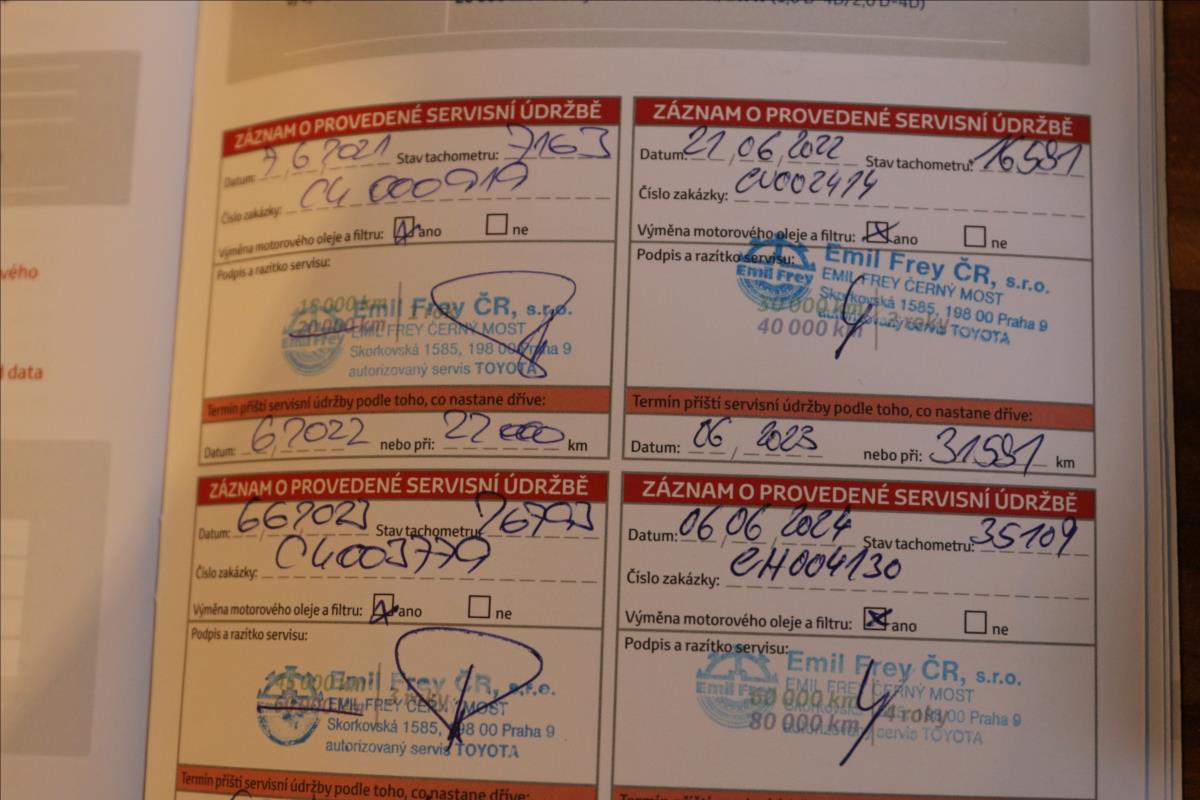 ZÁZNAM O PROVEDENÉ SERVISNÍ ÚDRŽBĚ
Datum: 7 6 2021 Stav tachometru: 7163
Číslo zakázky: C4 000919
Výměna motorového oleje a filtru: ano ne
Podpis a razítko servisu:
15 000 km
20 000 km
Emil Frey
Emil Frey ČR, s.r.o.
EMIL FREY ČERNÝ MOST
Skorkovská 1585, 198 00 Praha 9
autorizovaný servis TOYOTA
Termín příští servisní údržby podle toho, co nastane dříve:
Datum: 6 2022 nebo při: 22 000 km
ZÁZNAM O PROVEDENÉ SERVISNÍ ÚDRŽBĚ
Datum: 21 06 2022 Stav tachometru: 16591
Číslo zakázky: 002414
Výměna motorového oleje a filtru: ano ne
Podpis a razítko servisu:
30 000 km 2 roky
40 000 km
Emil Frey
Emil Frey ČR, s.r.o.
EMIL FREY ČERNÝ MOST
Skorkovská 1585, 198 00 Praha 9
autorizovaný servis TOYOTA
Termín příští servisní údržby podle toho, co nastane dříve:
Datum: 06 2023 nebo při: 31591 km
ZÁZNAM O PROVEDENÉ SERVISNÍ ÚDRŽBĚ
Datum: 6 6 2023 Stav tachometru: 26793
Číslo zakázky: C4003779
Výměna motorového oleje a filtru: ano ne
Podpis a razítko servisu:
45 000 km 3 roky
60 000 km
Emil Frey ČR, s.r.o.
EMIL FREY ČERNÝ MOST
Skorkovská 1585, 198 00 Praha 9
autorizovaný servis TOYOTA
Termín příští servisní údržby podle toho, co nastane dříve:
ZÁZNAM O PROVEDENÉ SERVISNÍ ÚDRŽBĚ
Datum: 06 06 2024 Stav tachometru: 35109
Číslo zakázky: CH004130
Výměna motorového oleje a filtru: ano ne
Podpis a razítko servisu:
60 000 km 4 roky
80 000 km
Emil Frey
Emil Frey ČR, s.r.o.
EMIL FREY ČERNÝ MOST
Skorkovská 1585, 198 00 Praha 9
autorizovaný servis TOYOTA
data